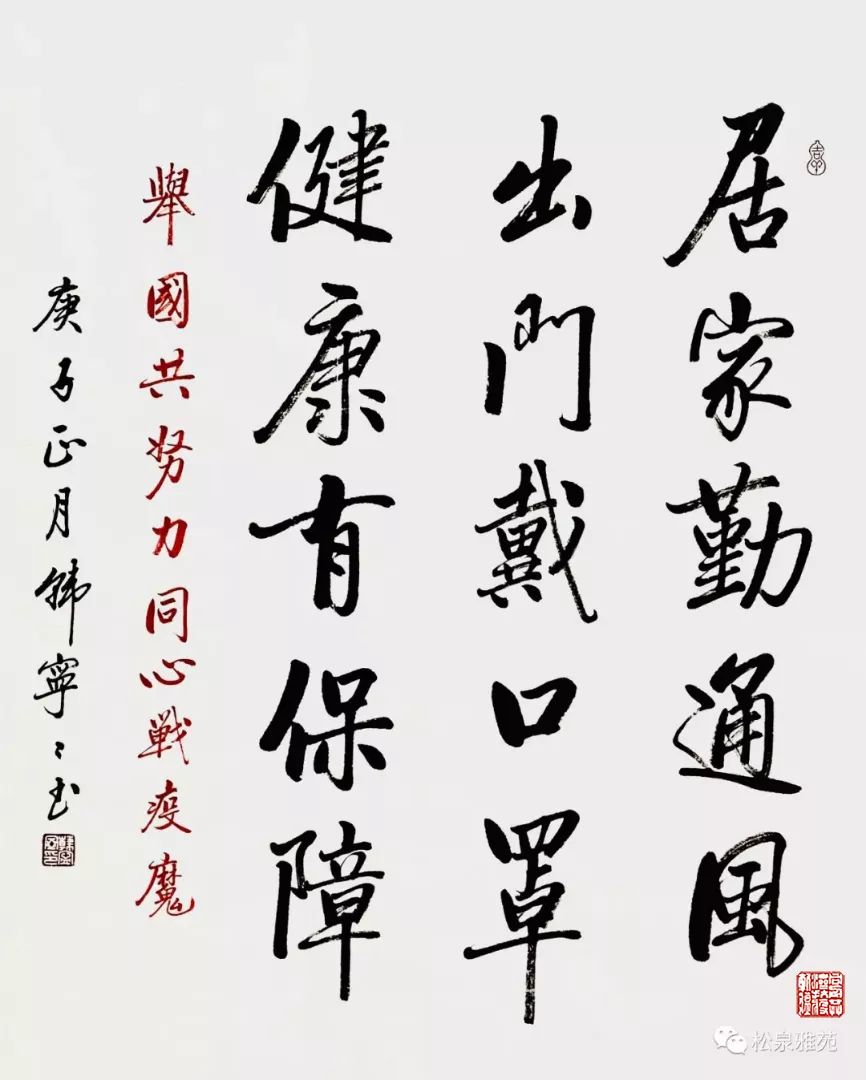 居家勤通風
出門戴口罩
健康有保障
舉國共努力同心戰疫魔
庚子正月韩寧寧书
松泉雅苑